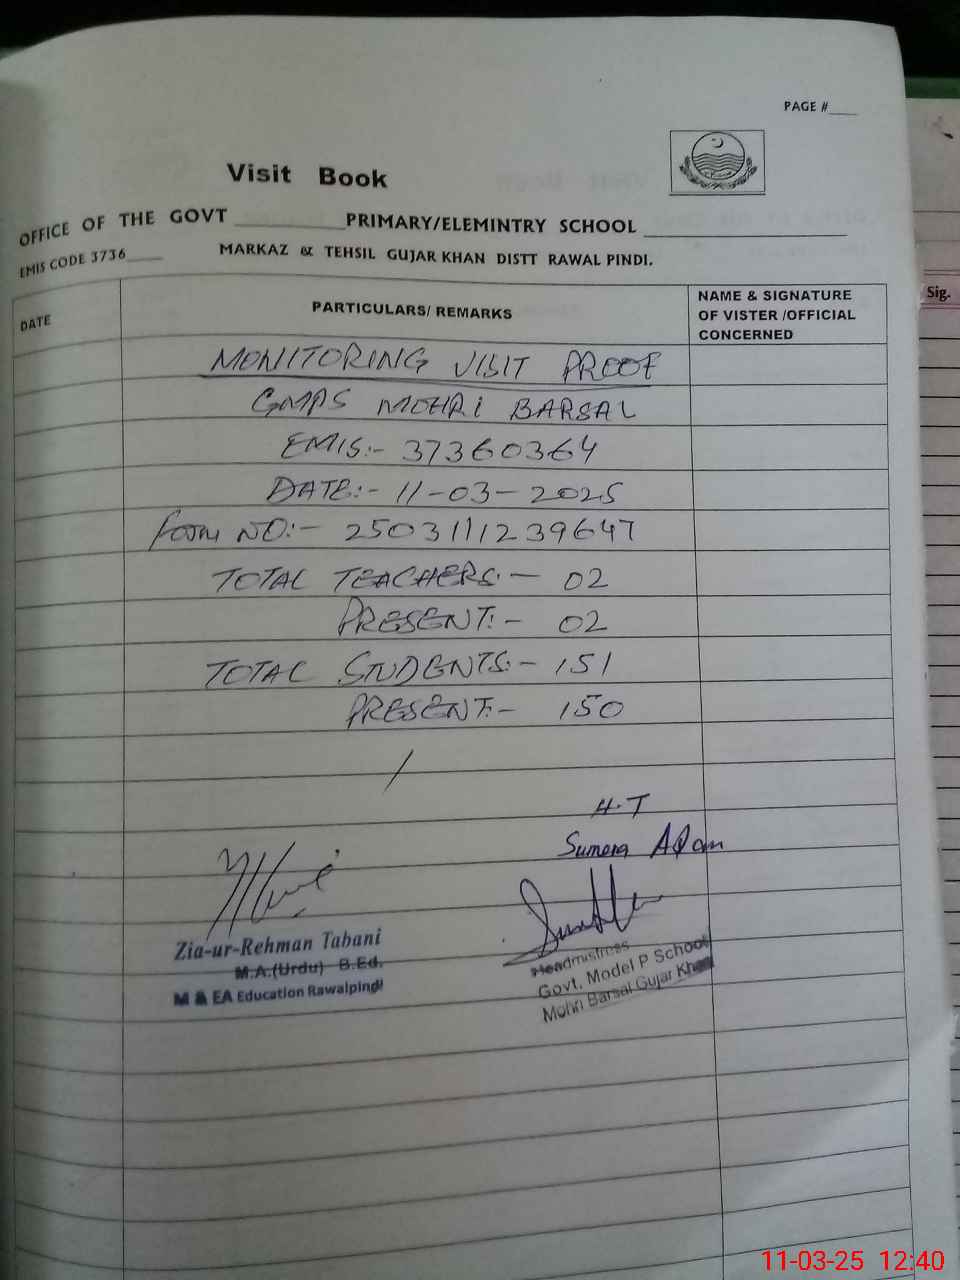 PAGE #___
Visit Book
OFFICE OF THE GOVT __________ PRIMARY/ELEMINTRY SCHOOL __________________
EMIS CODE 3736____ MARKAZ & TEHSIL GUJAR KHAN DISTT RAWAL PINDI.
Sig.
DATE
PARTICULARS/ REMARKS
NAME & SIGNATURE
OF VISTER /OFFICIAL
CONCERNED
MONITORING VISIT PROOF
GMPS MOHRI BARSAL
EMIS:- 37360364
DATE:- 11-03-2025
Form NO:- 2503111239647
TOTAL TEACHERS:- 02
PRESENT:- 02
TOTAL STUDENTS:- 151
PRESENT:- 150
H.T
Sumera
Zia-ur-Rehman Tabani
M.A.(Urdu) B.Ed.
M & EA Education Rawalpindi
Headmistress
Govt. Model P School
Mohri Barsal Gujar Khan
11-03-25 12:40